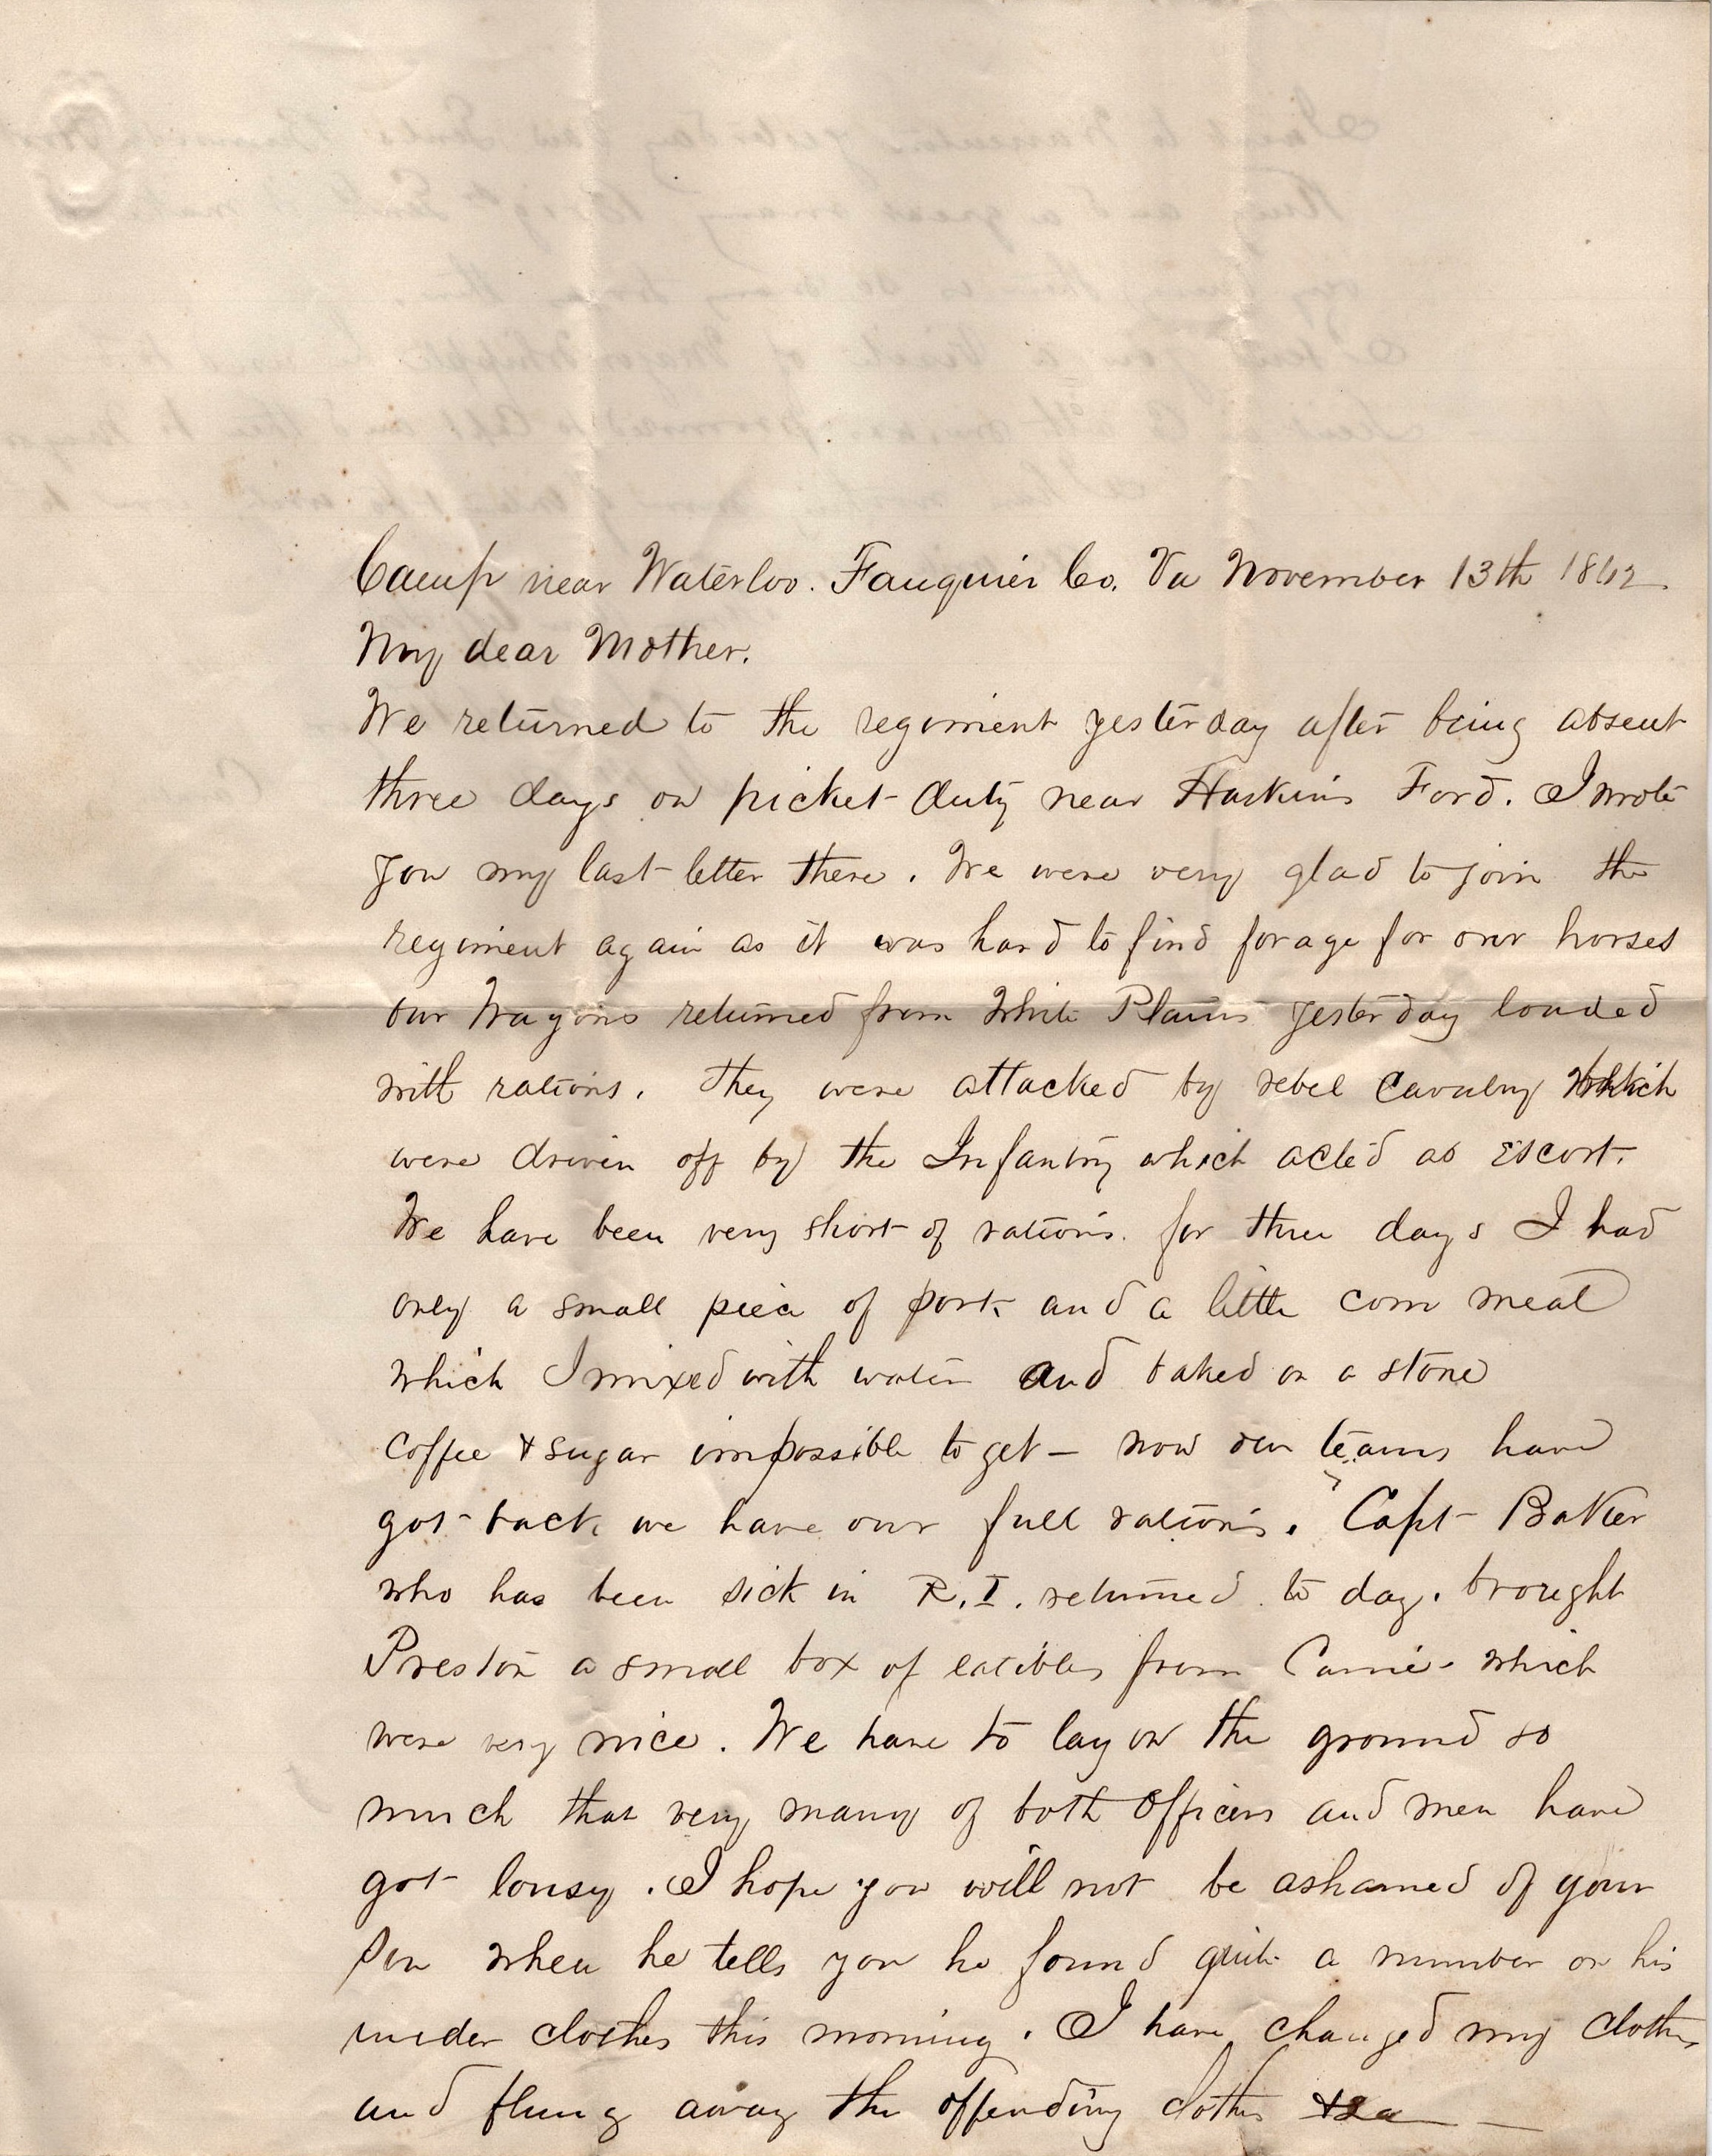 Camp near Waterloo. Fauquier Co. Va November 13th 1862.
My dear Mother.
We returned to the regiment yesterday after being absent
three days on picket duty near Haskins Ford. I wrote
you my last letter there. We were very glad to join the
regiment again as it was hard to find forage for our horses
our Wagons returned from White Plains yesterday loaded
with rations. They were attacked by rebel Cavalry Which
were driven off by the Infantry which acted as Escort.
We have been very short of rations. for three days I had
only a small piece of pork and a little corn meal
which I mixed with water and baked on a stone
coffee & sugar impossible to get — now our teams have
got back we have our full rations. Capt Baker
who has been sick in R.I. returned to day. brought
Preston a small box of eatibles from Carrie - which
were very nice. We have to lay on the ground so
much that very many of both Officers and men have
got lousy. I hope you will not be ashamed of your
son when he tells you he found quite a number on his
under clothes this morning. I have changed my clothes
and flung away the offending clothes &c —